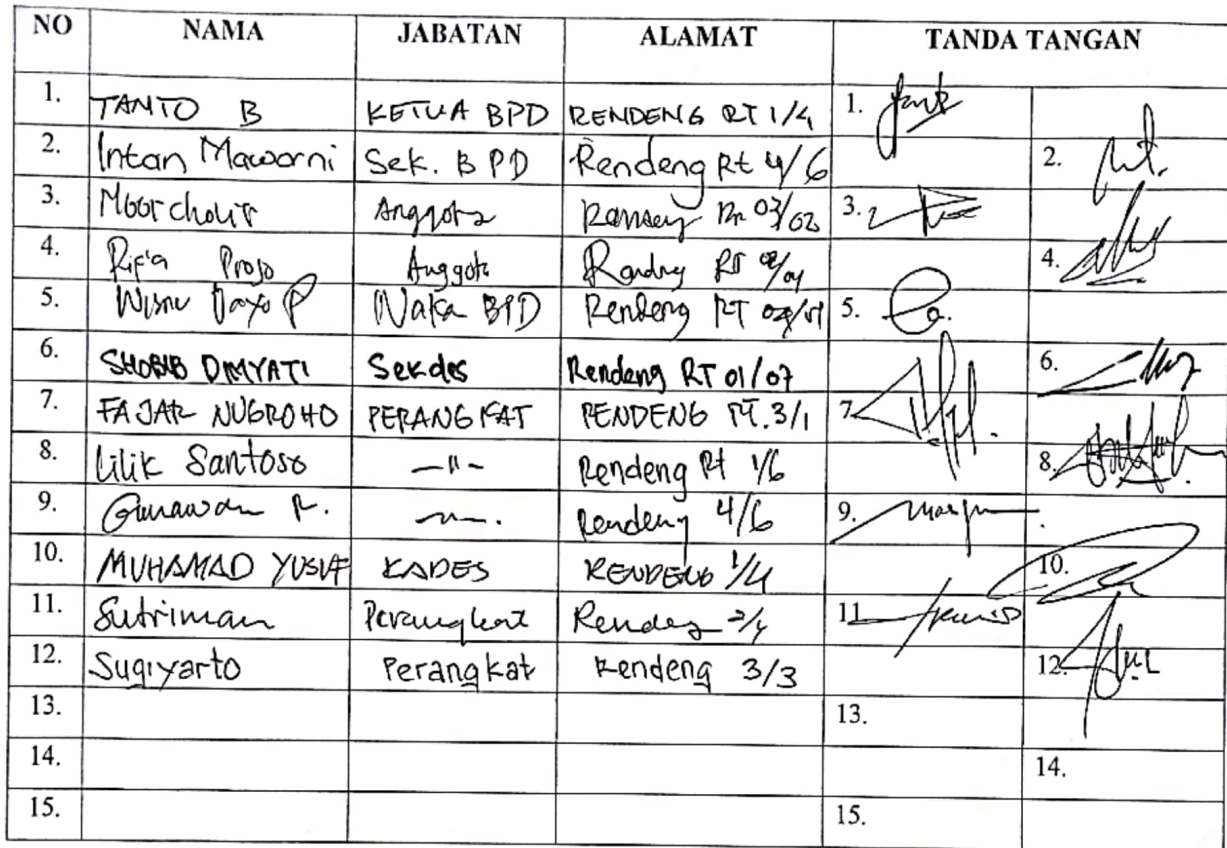 NO NAMA JABATAN ALAMAT TANDA TANGAN
1. TANTO B KETUA BPD RENDENG RT 1/4 1.
2. Intan Mawarni Sek. BPD Rendeng Rt 4/6 2.
3. Anggota 03/02 3.
4. Anggota RT 4.
5. Wisnu Waka BPD Rendeng RT 5.
6. SHOBIB DIMYATI Sekdes Rendeng RT 01/07 6.
7. FAJAR NUGROHO PERANGKAT RENDENG RT.3/1 7.
8. Lilik Santoso —"— Rendeng Rt 1/6 8.
9. Gunawan Rendeng 4/6 9.
10. MUHAMAD YUSUF KADES RENDENG 1/4 10.
11. Sutriman Perangkat Rendeng 2/4 11.
12. Sugiyarto Perangkat Rendeng 3/3 12.
13. 13.
14. 14.
15. 15.